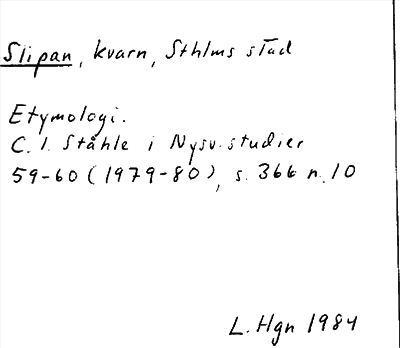 Slipan, kvarn, Sthlms stad
Etymologi.
C. I. Ståhle i Nysv. studier
59-60 (1979-80), s. 366 n. 10
L. Hgn 1984